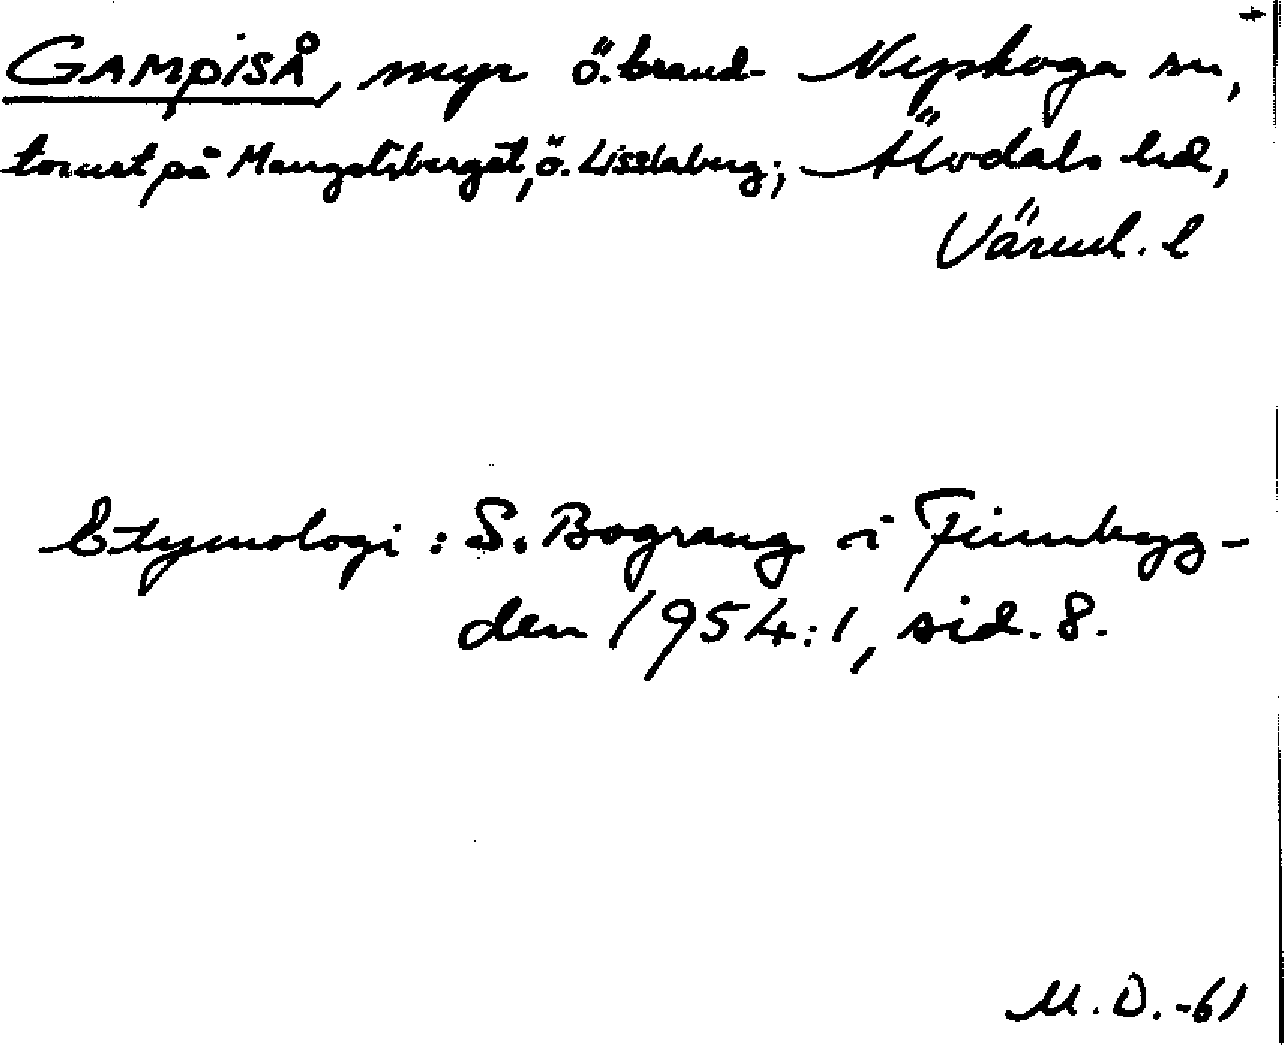 GAMPISÅ, myr ö. brand- Nyskoga sn,
tornet på Mangsliberget, ö. Lisslaberg; Älvdals hd,
Värml. l
Etymologi: S. Bograng i Finnbyg-
den 1954:1, sid. 8.
M.D. -61